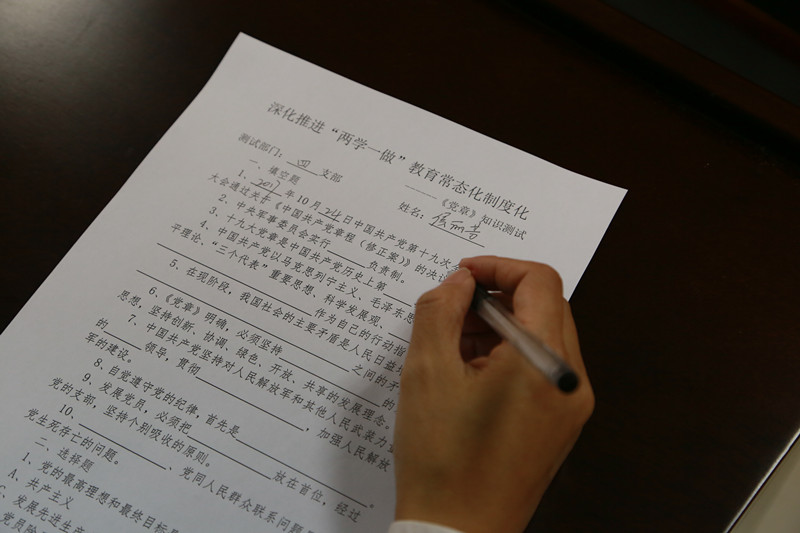 深化推进“两学一做”教育常态化制度化
——《党章》知识测试
测试部门：四支部
姓名：
一、填空题
1、2017年10月24日中国共产党第十九次
大会通过关于《中国共产党章程（修正案）》的决议
2、中央军事委员会实行 负责制。
3、十九大党章是中国共产党历史上第
4、中国共产党以马克思列宁主义、毛泽东思
平理论、“三个代表”重要思想、科学发展观、
作为自己的行动指
5、在现阶段，我国社会的主要矛盾是人民日益增
之间的矛
6、《党章》明确，必须坚持 的
思想，坚持创新、协调、绿色、开放、共享的发展理念。
7、中国共产党坚持对人民解放军和其他人民武装力量
的 领导，贯彻 ，加强人民解放
军的建设。
8、自觉遵守党的纪律，首先是 。
9、发展党员，必须把 放在首位，经过
党的支部，坚持个别吸收的原则。
10、 、党同人民群众联系问题
党生死存亡的问题。
二、选择题
1、党的最高理想和最终目标是
A、共产主义
C、发展先进生产
党员除